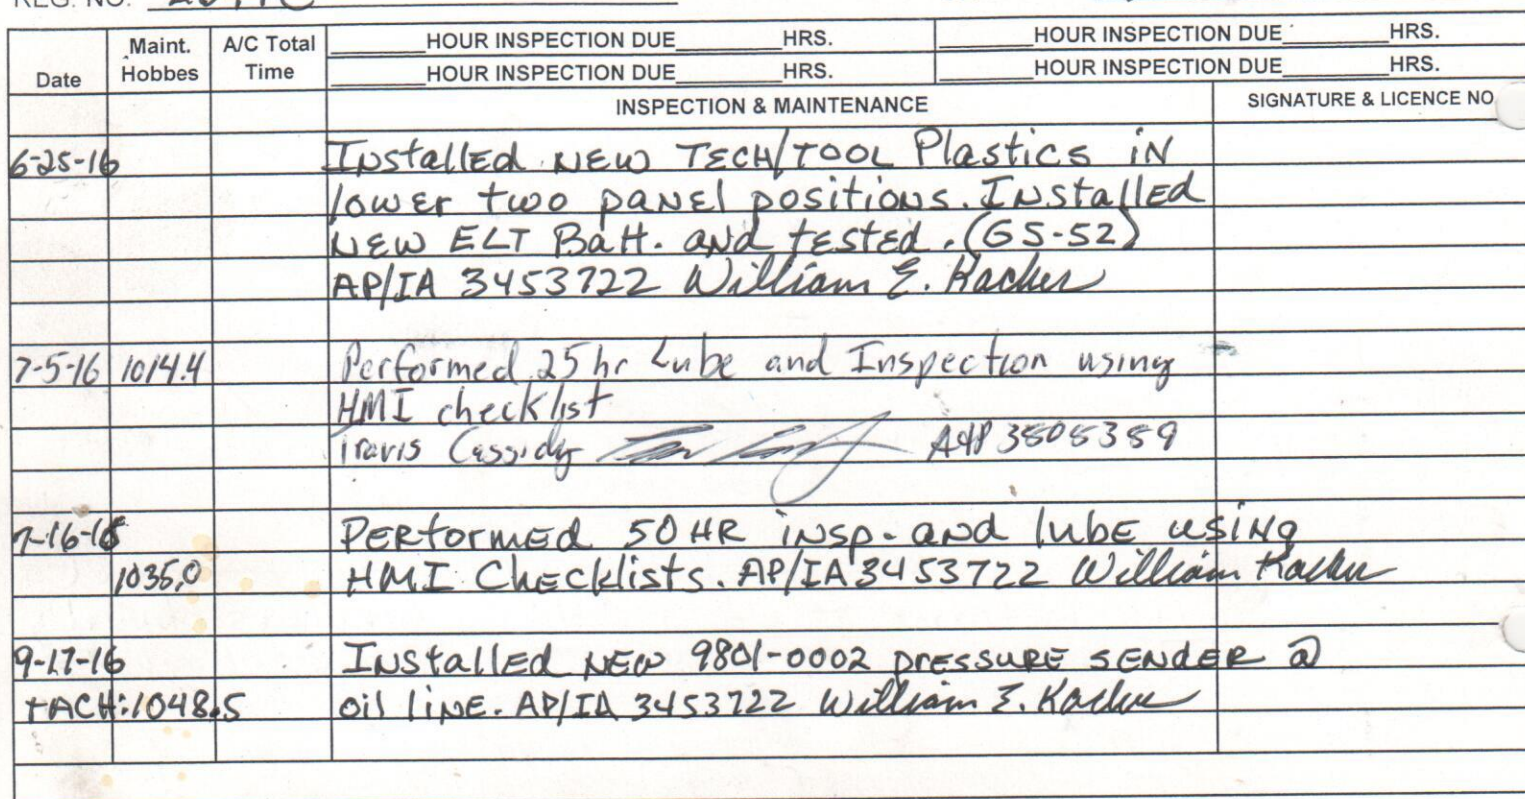 REG. NO.
Date
Maint. Hobbes
A/C Total Time
HOUR INSPECTION DUE HRS. HOUR INSPECTION DUE HRS.
HOUR INSPECTION DUE HRS. HOUR INSPECTION DUE HRS.
INSPECTION & MAINTENANCE
SIGNATURE & LICENCE NO
6-25-16 Installed NEW TECH/TOOL Plastics in
lower two panel positions. Installed
NEW ELT Batt. and tested. (G5-52)
AP/IA 3453722 William E.
7-5-16 1014.4 Performed 25 hr Lube and Inspection using
HMI checklist
Travis Cassidy A&P 3505359
7-16-16 PERformED 50 HR insp. and lube using
1035.0 HMI Checklists. AP/IA 3453722 William
9-17-16 Installed NEW 9801-0002 pressure sender @
TACH:1048.5 oil line. AP/IA 3453722 William E.